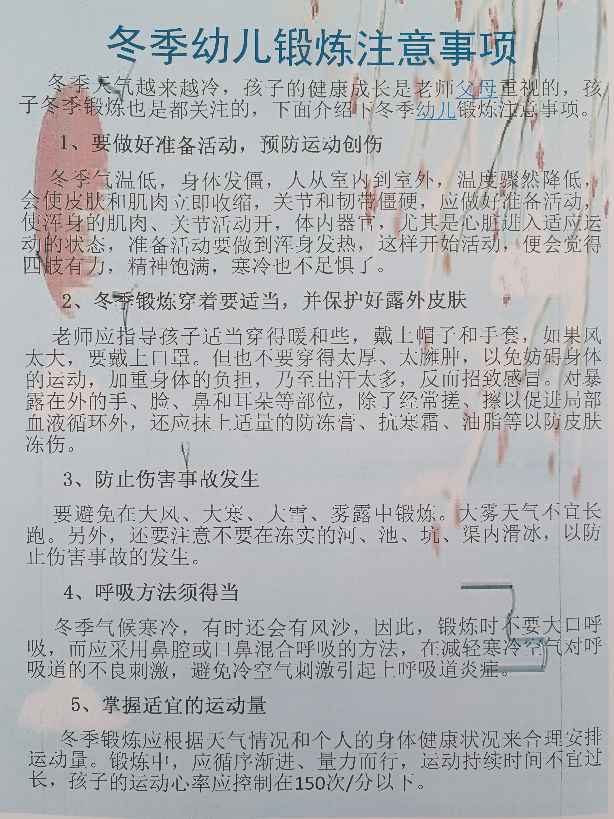 冬季幼儿锻炼注意事项
冬季天气越来越冷，孩子的健康成长是老师父母重视的，孩
子冬季锻炼也是都关注的，下面介绍下冬季幼儿锻炼注意事项。
1、要做好准备活动，预防运动创伤
冬季气温低，身体发僵，人从室内到室外，温度骤然降低，
会使皮肤和肌肉立即收缩，关节和韧带僵硬，应做好准备活动，
使浑身的肌肉、关节活动开，体内器官，尤其是心脏进入适应运
动的状态，准备活动要做到浑身发热，这样开始活动，便会觉得
四肢有力，精神饱满，寒冷也不足惧了。
2、冬季锻炼穿着要适当，并保护好露外皮肤
老师应指导孩子适当穿得暖和些，戴上帽子和手套，如果风
太大，要戴上口罩。但也不要穿得太厚、太臃肿，以免妨碍身体
的运动，加重身体的负担，乃至出汗太多，反而招致感冒。对暴
露在外的手、脸、鼻和耳朵等部位，除了经常搓、擦以促进局部
血液循环外，还应抹上适量的防冻膏、抗寒霜、油脂等以防皮肤
冻伤。
3、防止伤害事故发生
要避免在大风、大寒、大雪、雾露中锻炼。大雾天气不宜长
跑。另外，还要注意不要在冻实的河、池、坑、渠内滑冰，以防
止伤害事故的发生。
4、呼吸方法须得当
冬季气候寒冷，有时还会有风沙，因此，锻炼时不要大口呼
吸，而应采用鼻腔或口鼻混合呼吸的方法，在减轻寒冷空气对呼
吸道的不良刺激，避免冷空气刺激引起上呼吸道炎症。
5、掌握适宜的运动量
冬季锻炼应根据天气情况和个人的身体健康状况来合理安排
运动量。锻炼中，应循序渐进、量力而行，运动持续时间不宜过
长，孩子的运动心率应控制在150次/分以下。